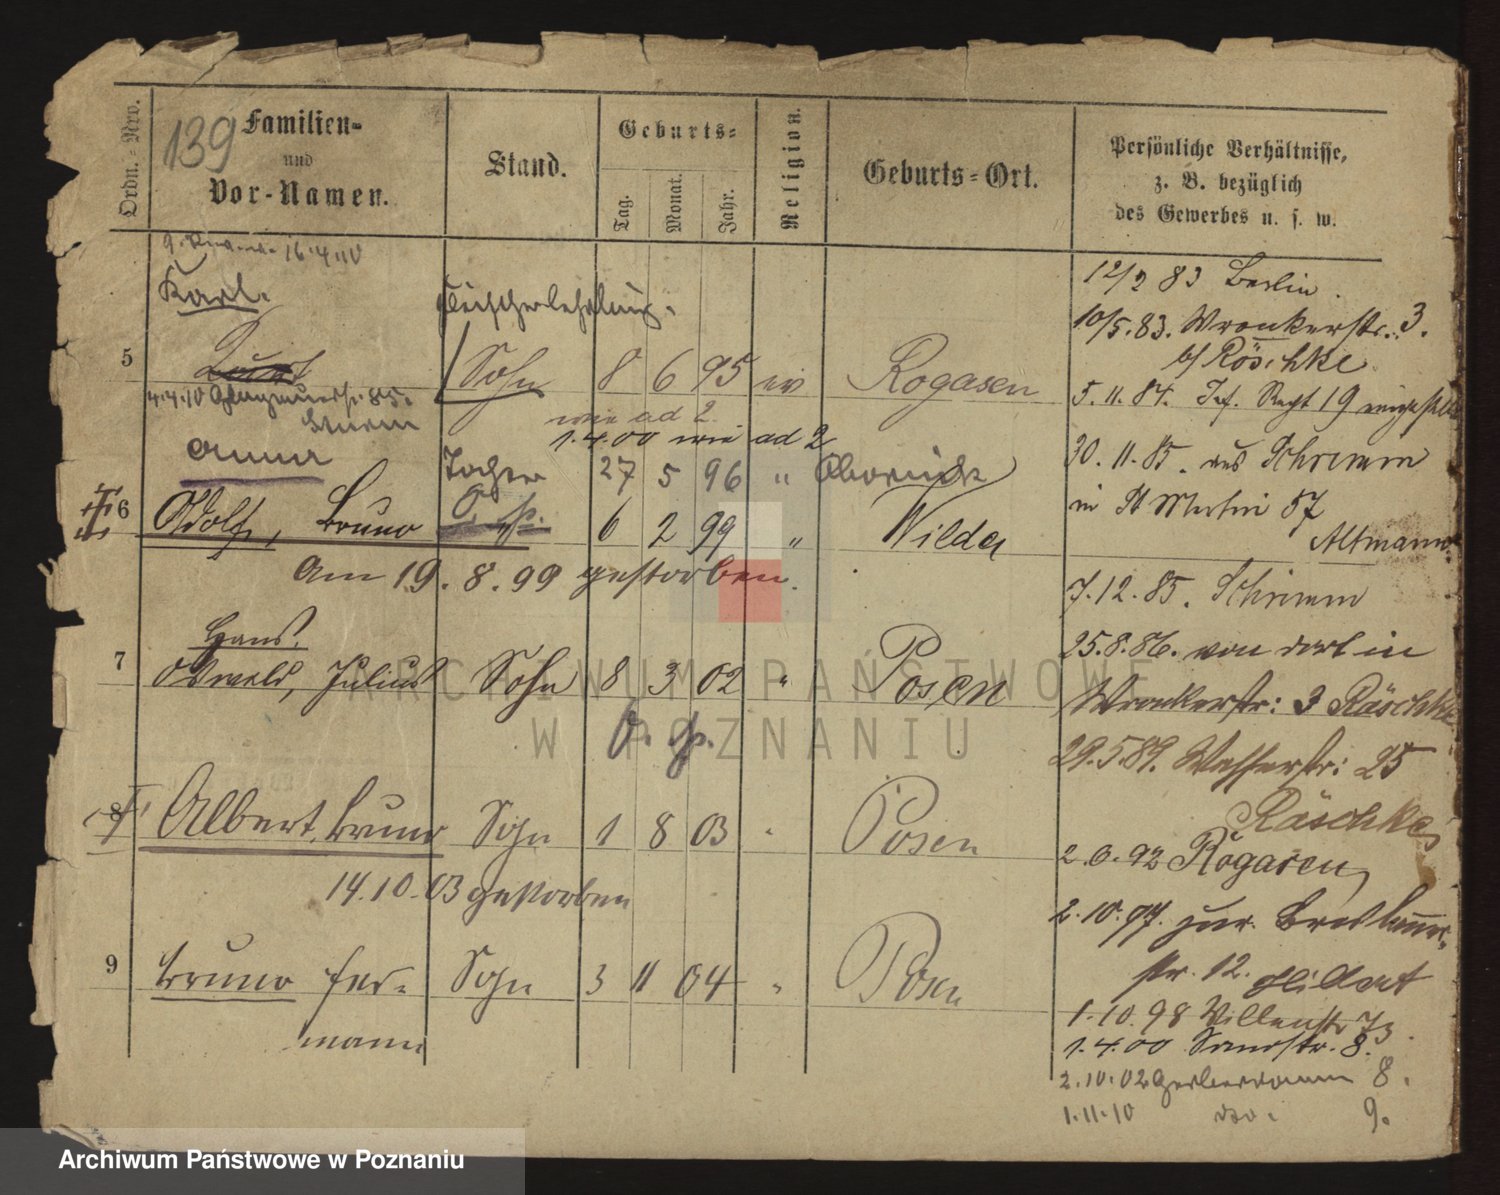 139
Ordn.-Nro.
Familien-
und
Vor-Namen.
Stand.
Geburts-
Tag.
Monat.
Jahr.
Religion.
Geburts-Ort.
Persönliche Verhältnisse,
z. B. bezüglich
des Gewerbes u. s. w.
16.4.10
Karl.
Fleischerlehrling.
5
Sohn 8 6 95 ev Rogasen
4.4.10 85.
Sturm
wie ad 2.
1.4.00 wie ad 2
Anna Tochter 27 5 96 "
6 Adolf, Bruno 6 2 99 " Wilda
am 19.8.99 gestorben.
Hans.
7 Oswald, Julius Sohn 8 3 02 " Posen
8 Albert, Bruno Sohn 1 8 03 " Posen
14.10.03 gestorben
9 Bruno Her-
mann
Sohn 3 11 04 " Posen
12/2 83 Berlin.
10/5.83. Wronkerstr. 3.
b/ Röschke
5.11.84. 19
30.11.85. aus Schrimm
in St Martin 57
Altmann
7.12.85. Schrimm
25.8.86. von dort in
Wronkerstr: 3 Räschke
29.5.89. 25
Räschke
92 Rogasen
2.10.97. zur. Breslauer-
str. 12.
1.10.98 73
1.4.00 Sandstr. 8.
2.10.02 Gerberdamm 8.
1.11.10 do. 9.
ARCHIWUM PAŃSTWOWE
W POZNANIU
Archiwum Państwowe w Poznaniu